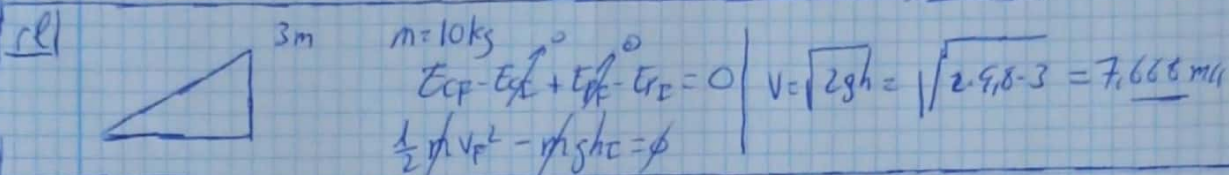 3m
m=10kg
E_CF - E_CI + E_PF - E_PI = 0
0 0
½ m v_F² - m g h_I = 0
v = √2gh = √2·9,8·3 = 7,668 m